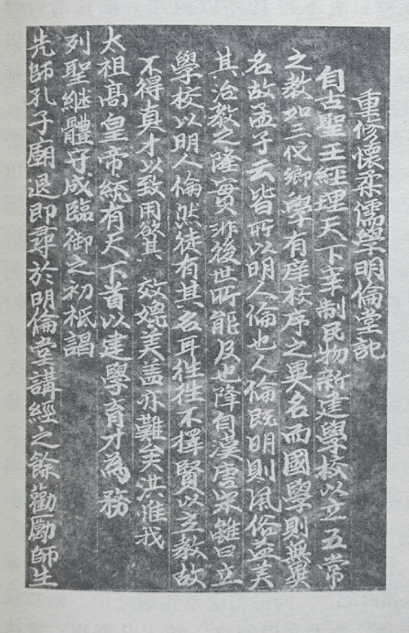 重修懷柔儒學明倫堂記
自古聖王經理天下宰制民物所建學校以立五常
之教如三代鄉學有庠校序之異名而國學則無異
名故孟子云皆所以明人倫也人倫既明則風俗益美
其治教之隆實非後世所能及也降自漢唐宋雖曰立
學校以明人倫然徒有其名耳徃徃不擇賢以主教故
不得真才以致用欲其效媲美盖亦難矣洪惟我
太祖高皇帝統有天下首以建學育才為務
列聖継體守成臨御之初祗謁
先師孔子廟退即尋於明倫堂講經之餘勸勵師生